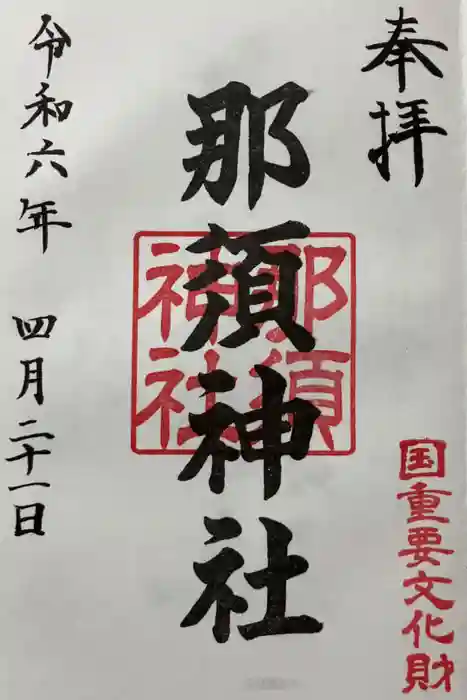 奉拝
国重要文化財
那須神社
那須神社
令和六年 四月二十一日